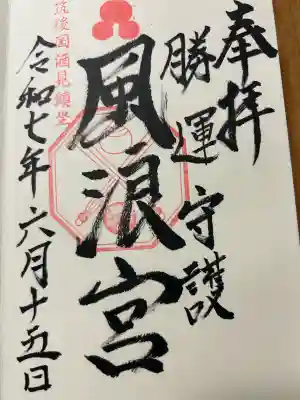 奉拝
勝運守護
風浪宮
筑後国酒見鎮座
令和七年六月十五日